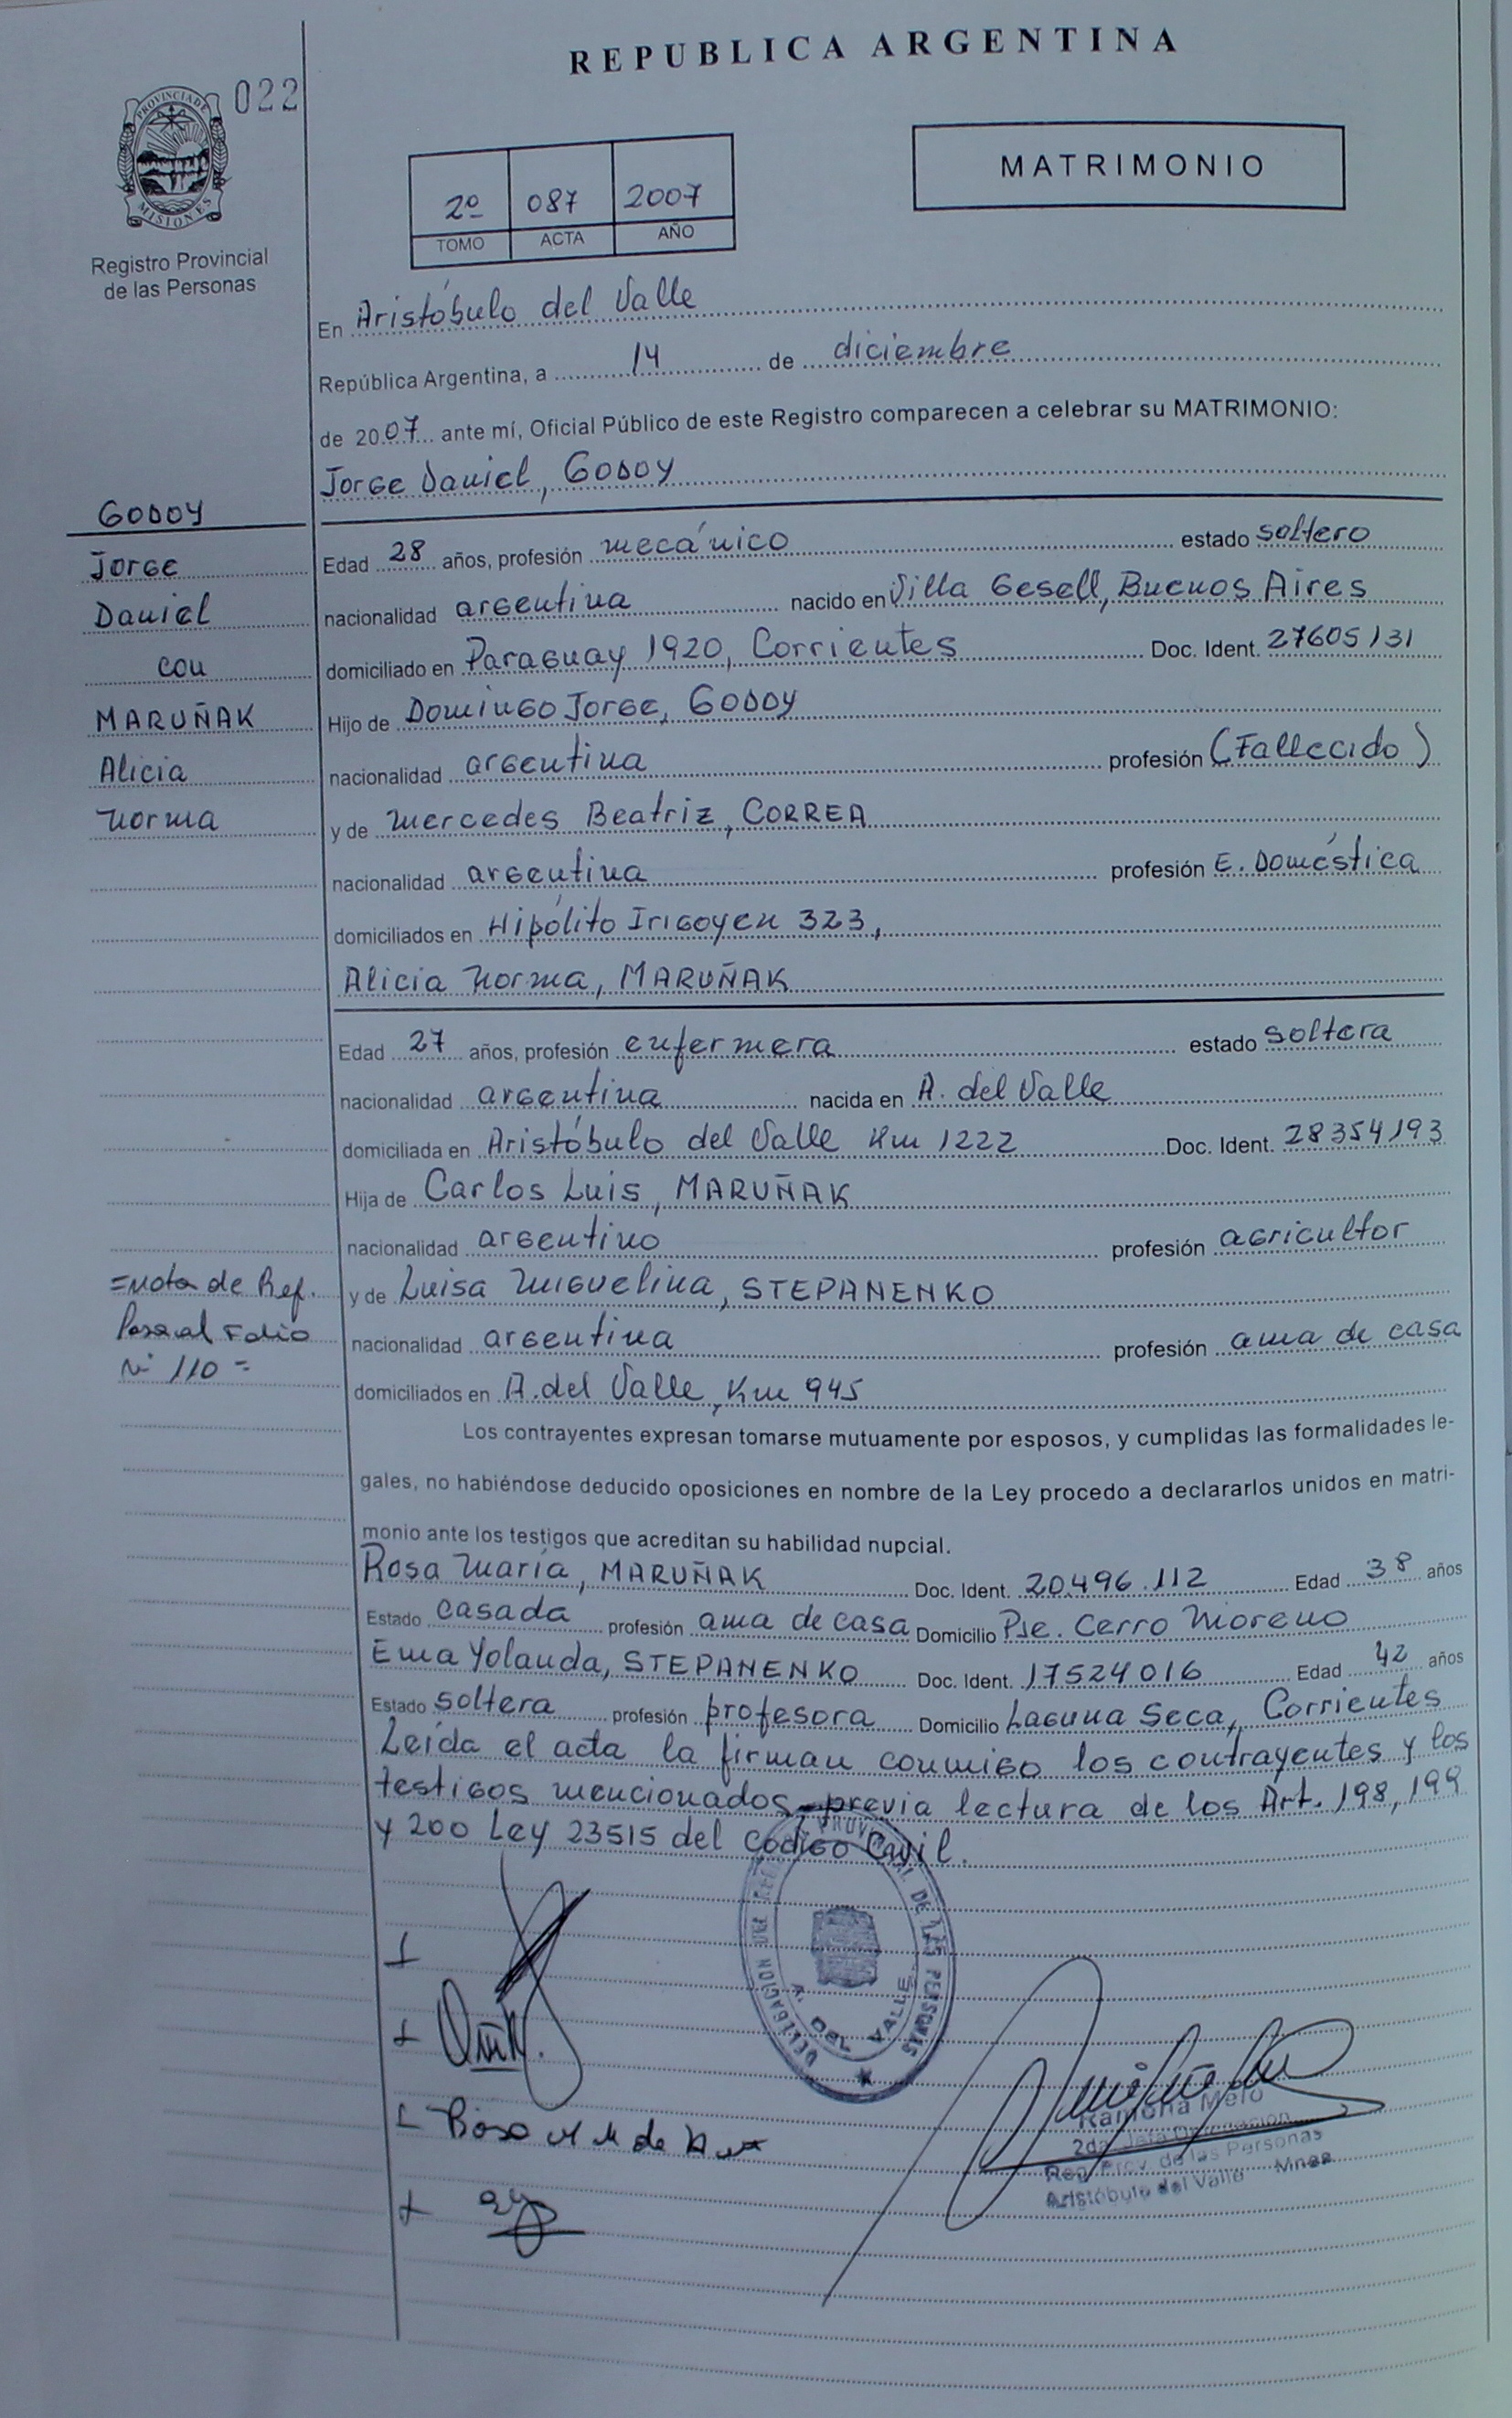 REPUBLICA ARGENTINA
022
PROVINCIA DE
MISIONES
Registro Provincial
de las Personas
2º 087 2007
TOMO ACTA AÑO
MATRIMONIO
En Aristóbulo del Valle
República Argentina, a 14 de diciembre
de 2007 ante mí, Oficial Público de este Registro comparecen a celebrar su MATRIMONIO:
Jorge Daniel, Godoy
Godoy
Jorge
Daniel
con
MARUÑAK
Alicia
Norma
Edad 28 años, profesión mecánico estado soltero
nacionalidad argentina nacido en Villa Gesell, Buenos Aires
domiciliado en Paraguay 1920, Corrientes Doc. Ident. 27605131
Hijo de Domingo Jorge, Godoy
nacionalidad argentina profesión (Fallecido)
y de Mercedes Beatriz, CORREA
nacionalidad argentina profesión E. Doméstica
domiciliados en Hipólito Irigoyen 323,
Alicia Norma, MARUÑAK
Edad 27 años, profesión enfermera estado soltera
nacionalidad argentina nacida en A. del Valle
domiciliada en Aristóbulo del Valle Km 1222 Doc. Ident. 28354193
Hija de Carlos Luis, MARUÑAK
nacionalidad argentino profesión agricultor
y de Luisa Miguelina, STEPANENKO
nacionalidad argentina profesión ama de casa
domiciliados en A. del Valle, Km 945
=Nota de Ref.
Pasa al Folio
Nº 110=
Los contrayentes expresan tomarse mutuamente por esposos, y cumplidas las formalidades le-
gales, no habiéndose deducido oposiciones en nombre de la Ley procedo a declararlos unidos en matri-
monio ante los testigos que acreditan su habilidad nupcial.
Rosa María, MARUÑAK Doc. Ident. 20.496.112 Edad 38 años
Estado casada profesión ama de casa Domicilio Pje. Cerro Moreno
Ema Yolanda, STEPANENKO Doc. Ident. 17524016 Edad 42 años
Estado soltera profesión profesora Domicilio Laguna Seca, Corrientes
Leída el acta la firman conmigo los contrayentes y los
testigos mencionados previa lectura de los Art. 198, 199
y 200 Ley 23515 del Código Civil.
DELEGACION DEL PROVINCIAL DE LAS PERSONAS
A. DEL VALLE
Rosa M M de
Ramona Melo
2da. Jefa Delegación
Reg. Prov. de las Personas
Aristóbulo del Valle Mnes